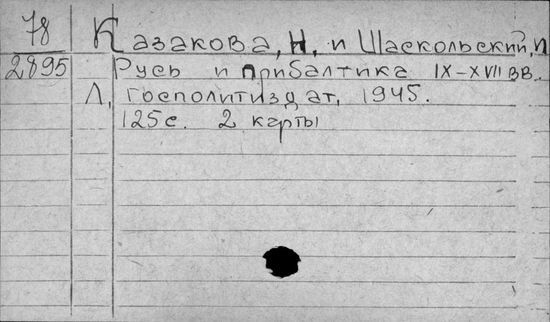 78 Казакова, Н. и Шаскольский, И
2895 Русь и прибалтика IX-XVII вв.
Л, госполитиздат, 1945.
125с. 2 карты